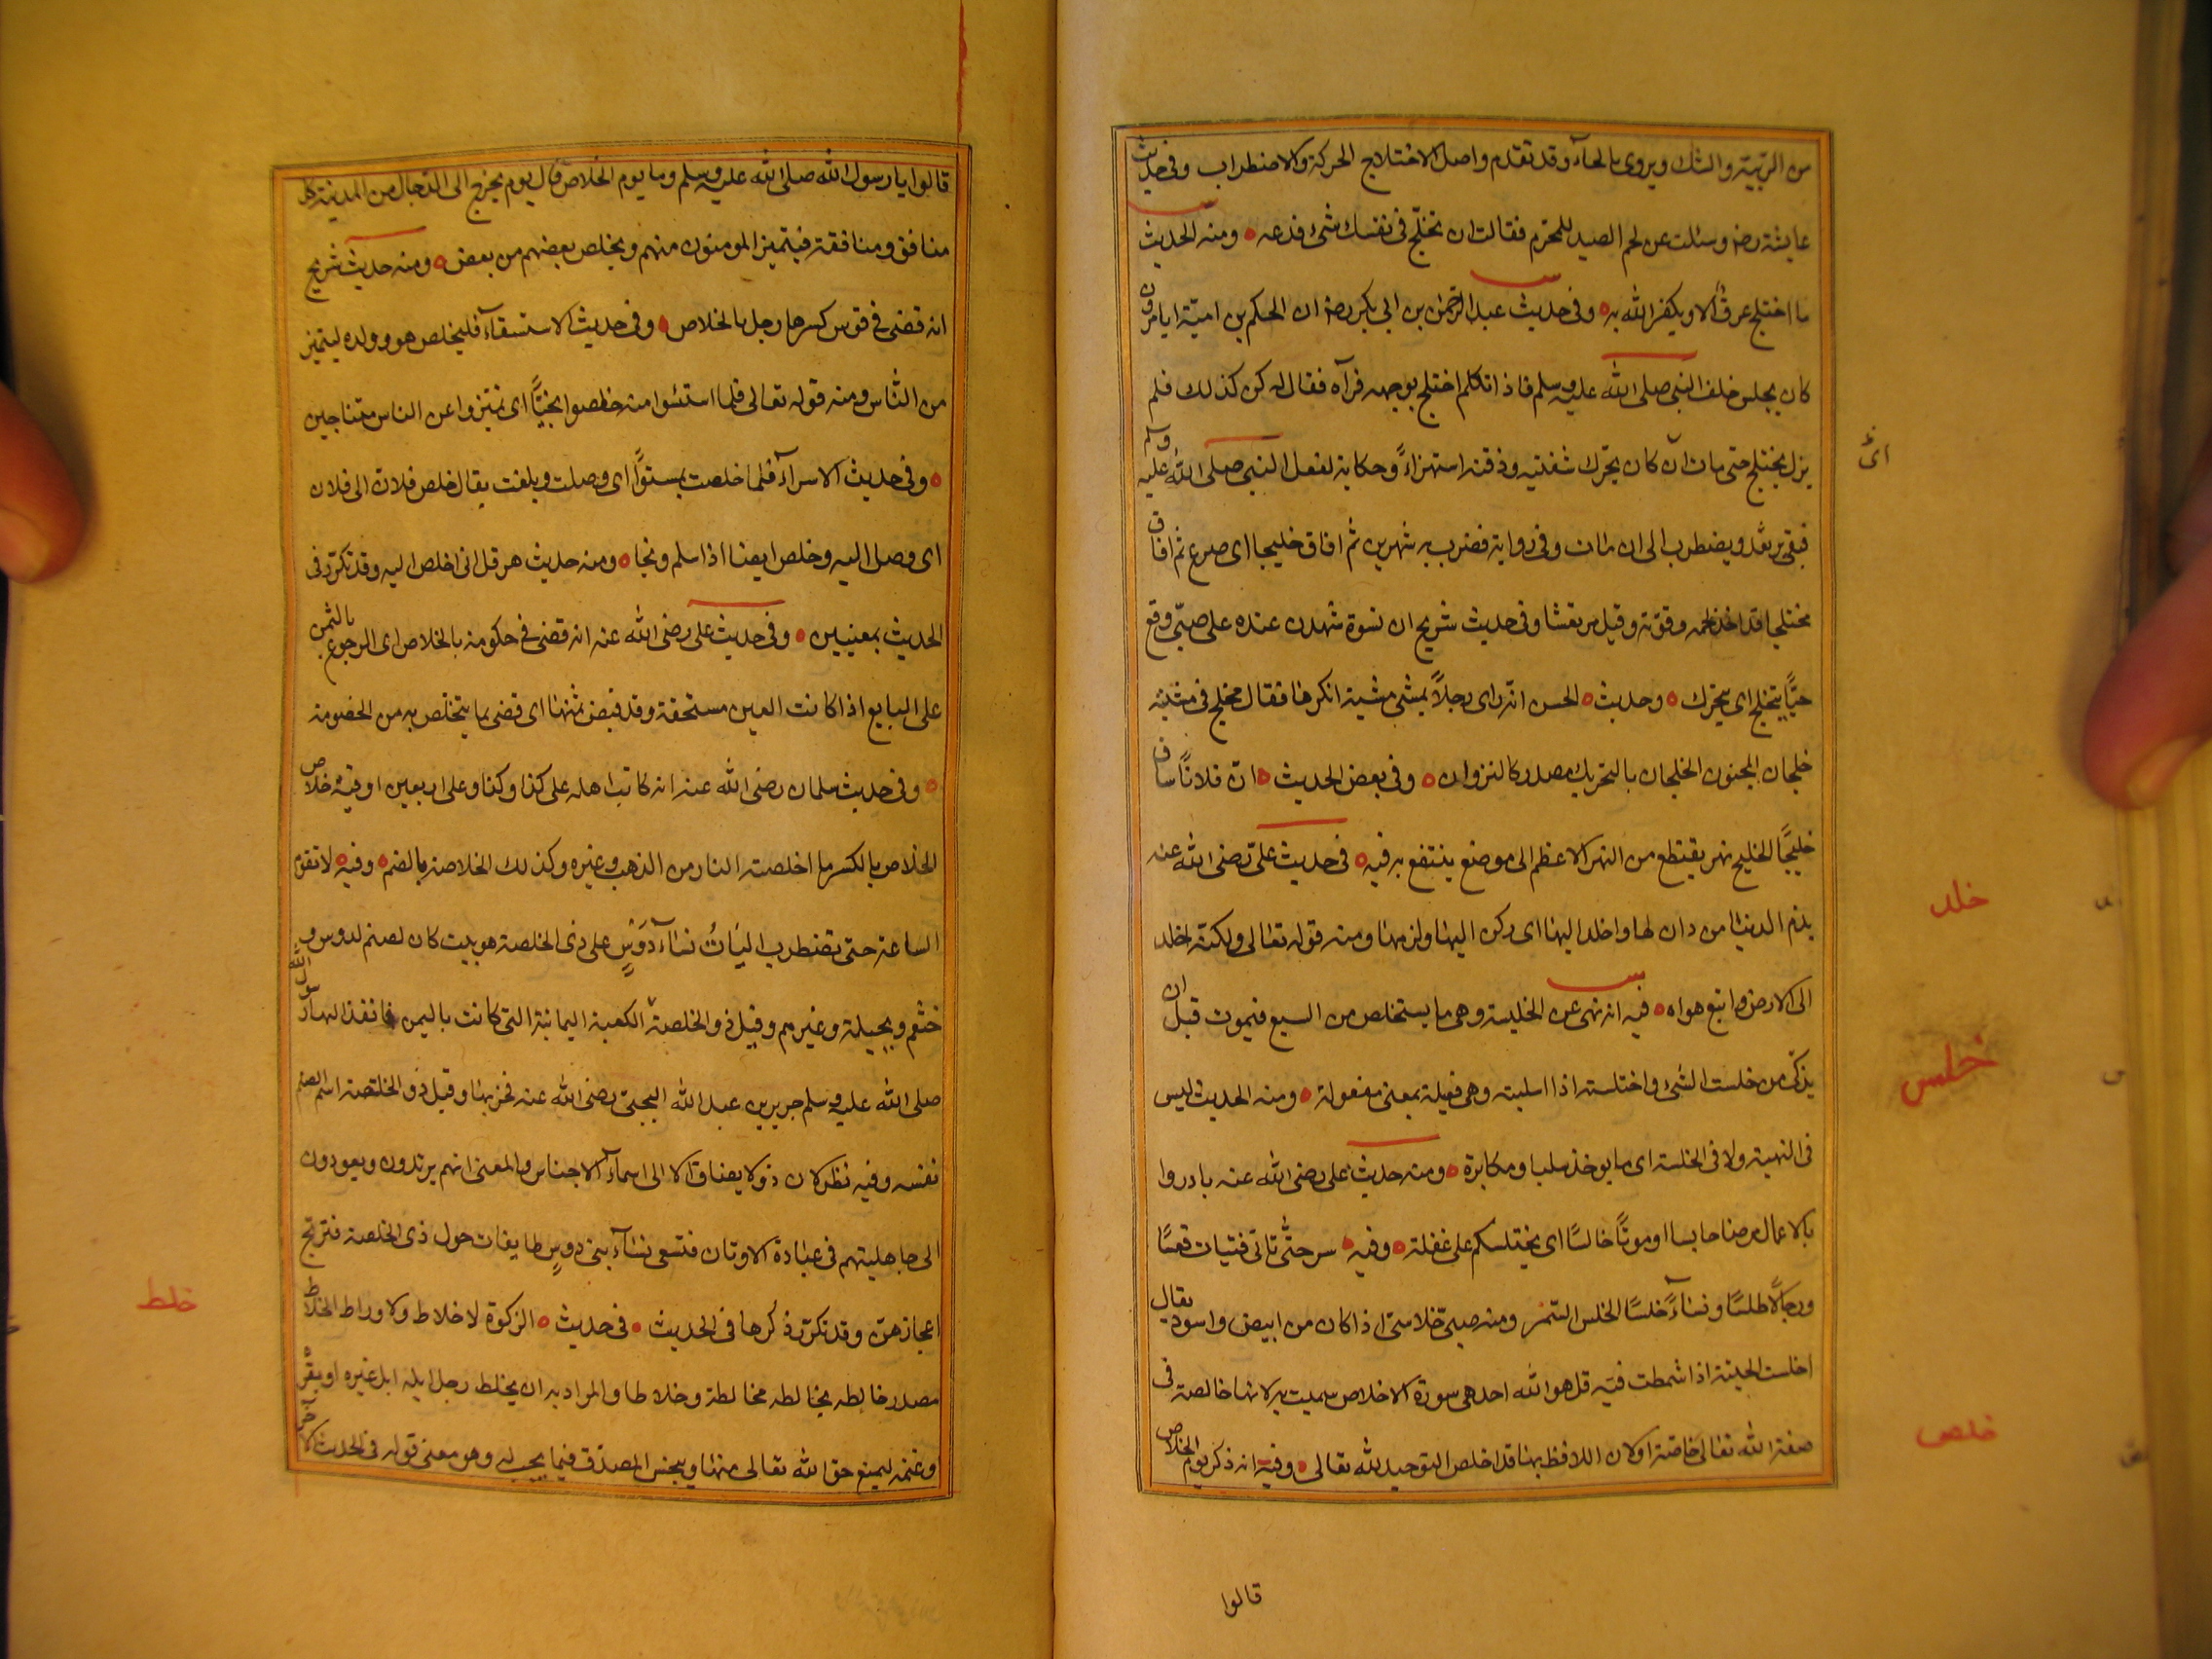 من الريبة والشك ويروى بالحاء وقد تقدم واصل الاختلاج الحركة والاضطراب وفى حديث
عايشة رضه وسئلت عن لحم الصيد للمحرم فقالت ان تخلّج فى نفسك شئ فدعه ومنه الحديث
ما اختلج عرق الا ويكفر الله به وفى حديث عبد الرحمن بن ابى بكر رضه ان الحكم بن امية ابا مروان
كان يجلس خلف النبى صلى الله عليه وسلم فاذا تكلم اختلج بوجهه فرآه فقال له كن كذلك فلم
يزل يختلج حتى مات ان كان يحرك شفتيه وذقنه استهزاءً وحكاية لفعل النبى صلى الله عليه وسلم
اى
فبقى يرتعد ويضطرب الى ان مات وفى رواية فضرب به شهرين ثم افاق خليجا اى صرع ثم افاق
مختلجا قد اخذ لحمه وقوته وقيل مرتعشا وفى حديث شريح ان نسوة شهدن عنده على صبىّ وقع
حيًّا يتخلج اى يتحرك وحديث الحسن انه راى رجلاً يمشى مشية انكرها فقال تخلج فى مشيته
خلجان المجنون الخلجان بالتحريك مصدر كالنزوان وفى بعض الحديث ان فلانًا ساق
خليجًا الخليج نهر يقتطع من النهر الاعظم الى موضع ينتفع به فيه فى حديث على رضى الله عنه
خلد
يذم الدنيا من دان لها واخلد اليها اى ركن اليها ولزمها ومنه قوله تعالى ولكنه اخلد
الى الارض واتبع هواه فيه انه نهى عن الخليسة وهى ما يستخلص من السبع فيموت قبل ان
خلس
يذكى من خلست الشئ واختلسته اذا سلبته وهى فعيلة بمعنى مفعولة ومنه الحديث ليس
فى النهبة ولا فى الخلسة اى ما يوخذ سلبا ومكابرة ومنه حديث على رضى الله عنه بادروا
بالاعمال مرضا حابسا او موتًا خالسًا اى يختلسكم على غفلة وفيه سر حتى تاتى فتيات قعسًا
ورجالاً طلسًا ونساءً خلسًا الخلس السّمر ومنه صبى خلاسى اذا كان من ابيض واسود يقال
اخلست لحيته اذا شمطت فيه قل هو الله احد هى سورة الاخلاص سميت به لانها خالصة فى
خلص
صفة الله تعالى خاصة او لان اللافظ بها قد اخلص التوحيد لله تعالى وفيه انه ذكر يوم الخلاص
قالوا
قالوا يا رسول الله صلى الله عليه وسلم وما يوم الخلاص قال يوم يخرج الى الدجال من المدينة كل
منافق ومنافقة فيتميز المومنون منهم ويخلص بعضهم من بعض ومنه حديث شريح
انه قضى فى قوس كسرها رجل بالخلاص وفى حديث الاستسقاء فليخلص هو وولده ليتميز
من الناس ومنه قوله تعالى فلما استئسوا منه خلصوا نجيًّا اى تميزوا عن الناس متناجين
وفى حديث الاسراء فلما خلصت بمستوًا اى وصلت وبلغت يقال خلص فلان الى فلان
اى وصل اليه وخلص ايضا اذا سلم ونجا ومنه حديث هرقل انى اخلص اليه وقد تكرر فى
الحديث بمعنيين وفى حديث على رضى الله عنه انه قضى فى حكومة بالخلاص اى الرجوع بالثمن
على البايع اذا كانت العين مستحقة وقد قبض ثمنها اى قضى بما يتخلص به من الخصومة
وفى حديث سلمان رضى الله عنه انه كاتب اهله على كذا وكذا وعلى اربعين اوقية خلاص
الخلاص بالكسر ما اخلصته النار من الذهب وغيره وكذلك الخلاصة بالضم وفيه لا تقوم
الساعة حتى تضطرب اليات نساء دوسٍ على ذى الخلصة هو بيت كان لصنم لدوس و
خثعم وبجيلة وغيرهم وقيل ذو الخلصة الكعبة اليمانية التى كانت باليمن فانفذ اليها رسول الله
صلى الله عليه وسلم جرير بن عبد الله البجلى رضى الله عنه فخربها وقيل ذو الخلصة اسم الصنم
نفسه وفيه نظر لان ذو لا يضاف الا الى اسماء الاجناس والمعنى انهم يرتدون ويعودون
الى جاهليتهم فى عبادة الاوثان فتسعى نساء بنى دوسٍ طايفات حول ذى الخلصة فترتج
خلط
اعجازهن وقد تكرر ذكرها فى الحديث فى حديث الزكوة لا خلاط ولا وراط الخلاط
مصدر خالطه يخالطه مخالطة وخلاطا والمراد به ان يخلط رجل ابله ابل غيره او بقره
او غنمه ليمنع حق الله تعالى منها ويبخس المصدق فيما يجب له وهو معنى قوله فى الحديث الآخر